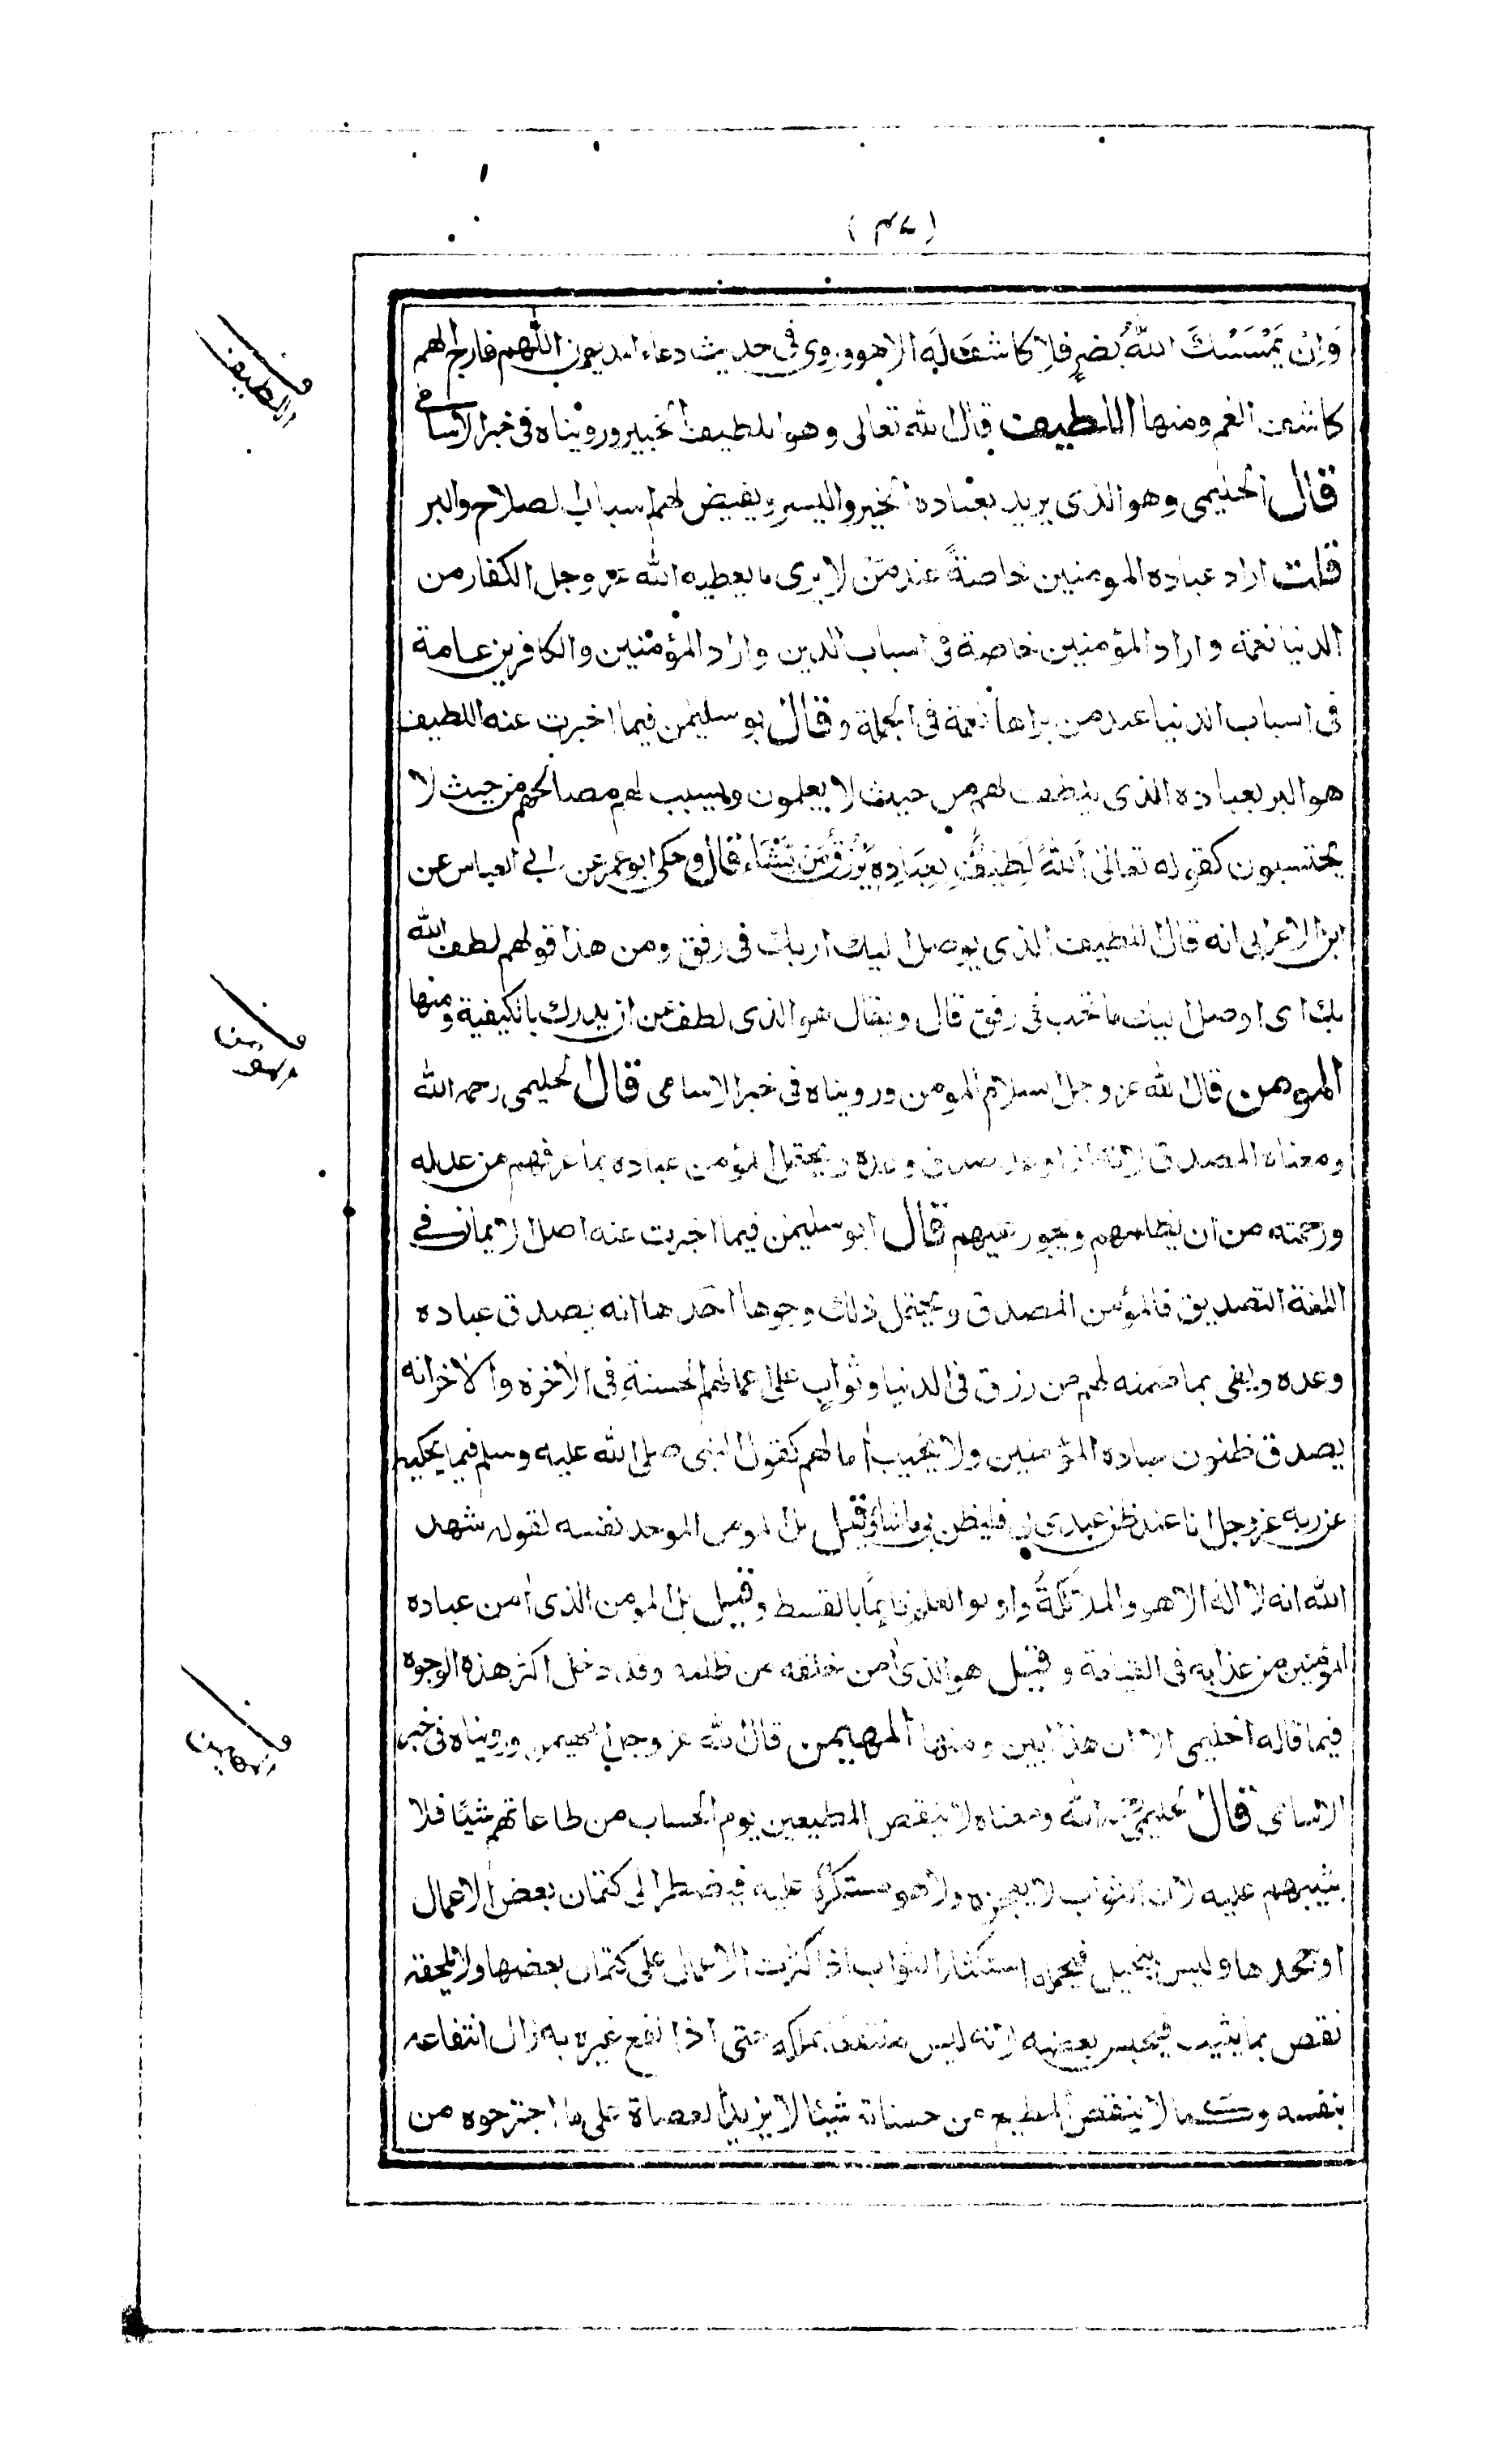 (٤٧)
وَاِنْ يَمْسَسْكَ اللّٰهُ بِضُرٍّ فلا كاشفَ لَه الا هو وروى فى حديث دعاء المديون اللّٰهم فارج الهم
كاشف الغم ومنها اللطيف قال الله تعالى وهو اللطيف الخبير ورويناه فى خبر الاسامى
قال الحليمى وهو الذى يريد بعباده الخير واليسر ويقيض لهم اسباب الصلاح والبر
قلت اراد عباده المومنين خاصةً عند مَنْ لا يرى ما يعطيه الله عز وجل الكفار من
الدنيا نعمة واراد المؤمنين خاصة فى اسباب الدين واراد المؤمنين والكافرين عامة
فى اسباب الدنيا عند من يراها نعمة فى الجملة وقال ابو سليمن فيما اخبرت عنه اللطيف
هو البر بعباده الذى يلطف لهم من حيث لا يعلمون ويسبب لهم مصالحهم من حيث لا
يحتسبون كقوله تعالى اَللّٰهُ لَطِيفٌ بِعِبَادِهٖ يَرْزُقُ مَنْ يَّشَاء قال وحكى ابو عمر عن ابى العباس عن
ابن الاعرابى انه قال اللطيف الذى يوصل اليك اربك فى رفق ومن هذا قولهم لطف الله
بك اى اوصل اليك ما تحب فى رفق قال ويقال هو الذى لطف عن ان يدرك بالكيفية ومنها
المومن قال الله عز وجل السلام المومن ورويناه فى خبر الاسامى قال الحليمى رحمه الله
ومعناه المصدق لانه اذا وعد صدق وعده ويحتمل المؤمن عباده بما عرفهم من عدله
ورحمته من ان يظلمهم ويجور عليهم قال ابو سليمن فيما اخبرت عنه اصل الايمان فى
اللغة التصديق فالمؤمن المصدق ويحتمل ذلك وجوها احدها انه يصدق عباده
وعده ويفى بما ضمنه لهم من رزق فى الدنيا وثواب على اعمالهم الحسنة فى الاخرة والاخر انه
يصدق ظنون عباده المؤمنين ولا يخيب آمالهم كقول النبى صلى الله عليه وسلم فيما يحكيه
عن ربه عز وجل انا عند ظن عبدى بى فليظن بى ما شاء وقيل بل المومن الموحد نفسه لقوله شهد
الله انه لا اله الا هو والملائكةُ واولوا العلم قائمًا بالقسط وقيل بل المومن الذى آمن عباده
المؤمنين من عذابه فى القيامة وقيل هو الذى آمن خلقه من ظلمه وقد دخل اكثر هذه الوجوه
فيما قاله الحليمى الا ان هذا ابين ومنها المهيمن قال الله عز وجل المهيمن ورويناه فى خبر
الاسامى قال الحليمى رحمه الله ومعناه لا ينقص المطيعين يوم الحساب من طاعاتهم شيئا فلا
يثيبهم عليه لان الثواب لا يعجزه ولا هو مستكره عليه فيضطر الى كتمان بعض الاعمال
او جحدها وليس ببخيل فيحمله استكثار الثواب اذا كثرت الاعمال على كتمان بعضها ولا يلحقه
نقص بما يثيب فيحبس بعضه لانه ليس منتفعا بملكه حتى اذا نفع غيره به زال انتفاعه
بنفسه وكما لا ينقص المطيع من حسناته شيئا لا يزيد العصاة على ما اجترحوه من
اللطيف
مومن
مهيمن